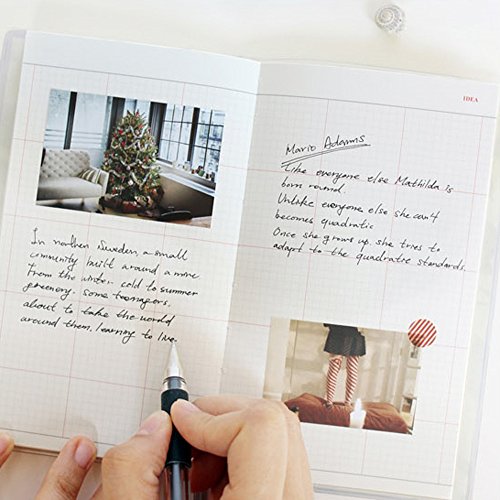 In northen Sweden, a small
community built around a mine
From the winter cold to summer
greenery, some teenagers,
about to take the world
around them, learning to live.
IDEA
Mario Adamns
Like everyone else Mathilda is
born round.
Unlike everyone else she can't
becomes quadratic
Once she grows up, she tries to
adapt to the quadratic standards.